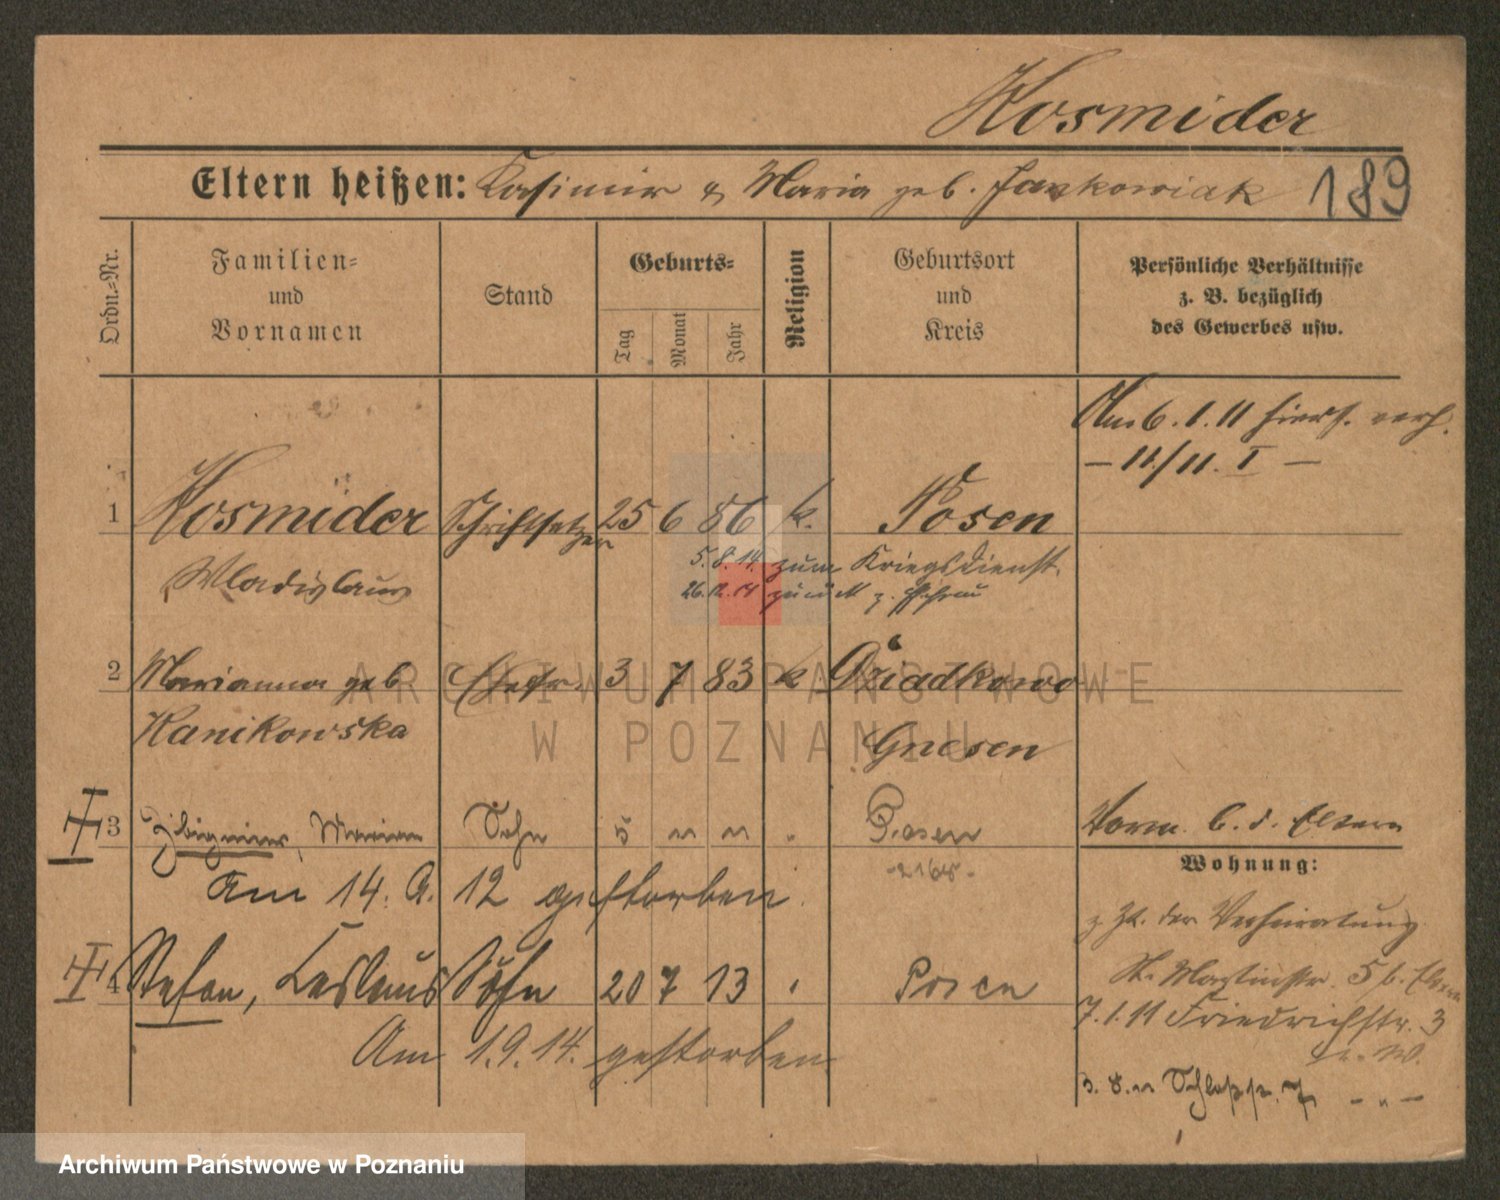 Kosmider
Eltern heißen: Kasimir & Maria geb. Jankowiak 189
Ordn.-Nr.
Familien- und Vornamen
Stand
Geburts-
Tag Monat Jahr
Religion
Geburtsort und Kreis
Persönliche Verhältnisse
z. B. bezüglich
des Gewerbes usw.
Am 6.1.11 hiers. verh.
– 11./11. I –
1 Kosmider Schriftsetzer 25 6 86 k. Posen
5.8.14. zum Kriegsdienst.
Wladislaus
26.12.14 zurück z.
2 Marianna geb Ehefr. 3 7 83 k Dziadkowo
Hanikowska Gnesen
3 Zbigniew, Marian Sohn 5 " " Posen
Vorm. b. d. Eltern
Am 14. 12 gestorben.
Wohnung:
z. Zt. der Verheiratung
4 Stefan, Ceslaus Sohn 20 7 13 Posen
St. Martinstr. 5 b. Eltern
7.1.11 Friedrichstr. 3
Am 1.9.14. gestorben
b. W.
3. 8. 11 – " –
ARCHIWUM PAŃSTWOWE
W POZNANIU
Archiwum Państwowe w Poznaniu